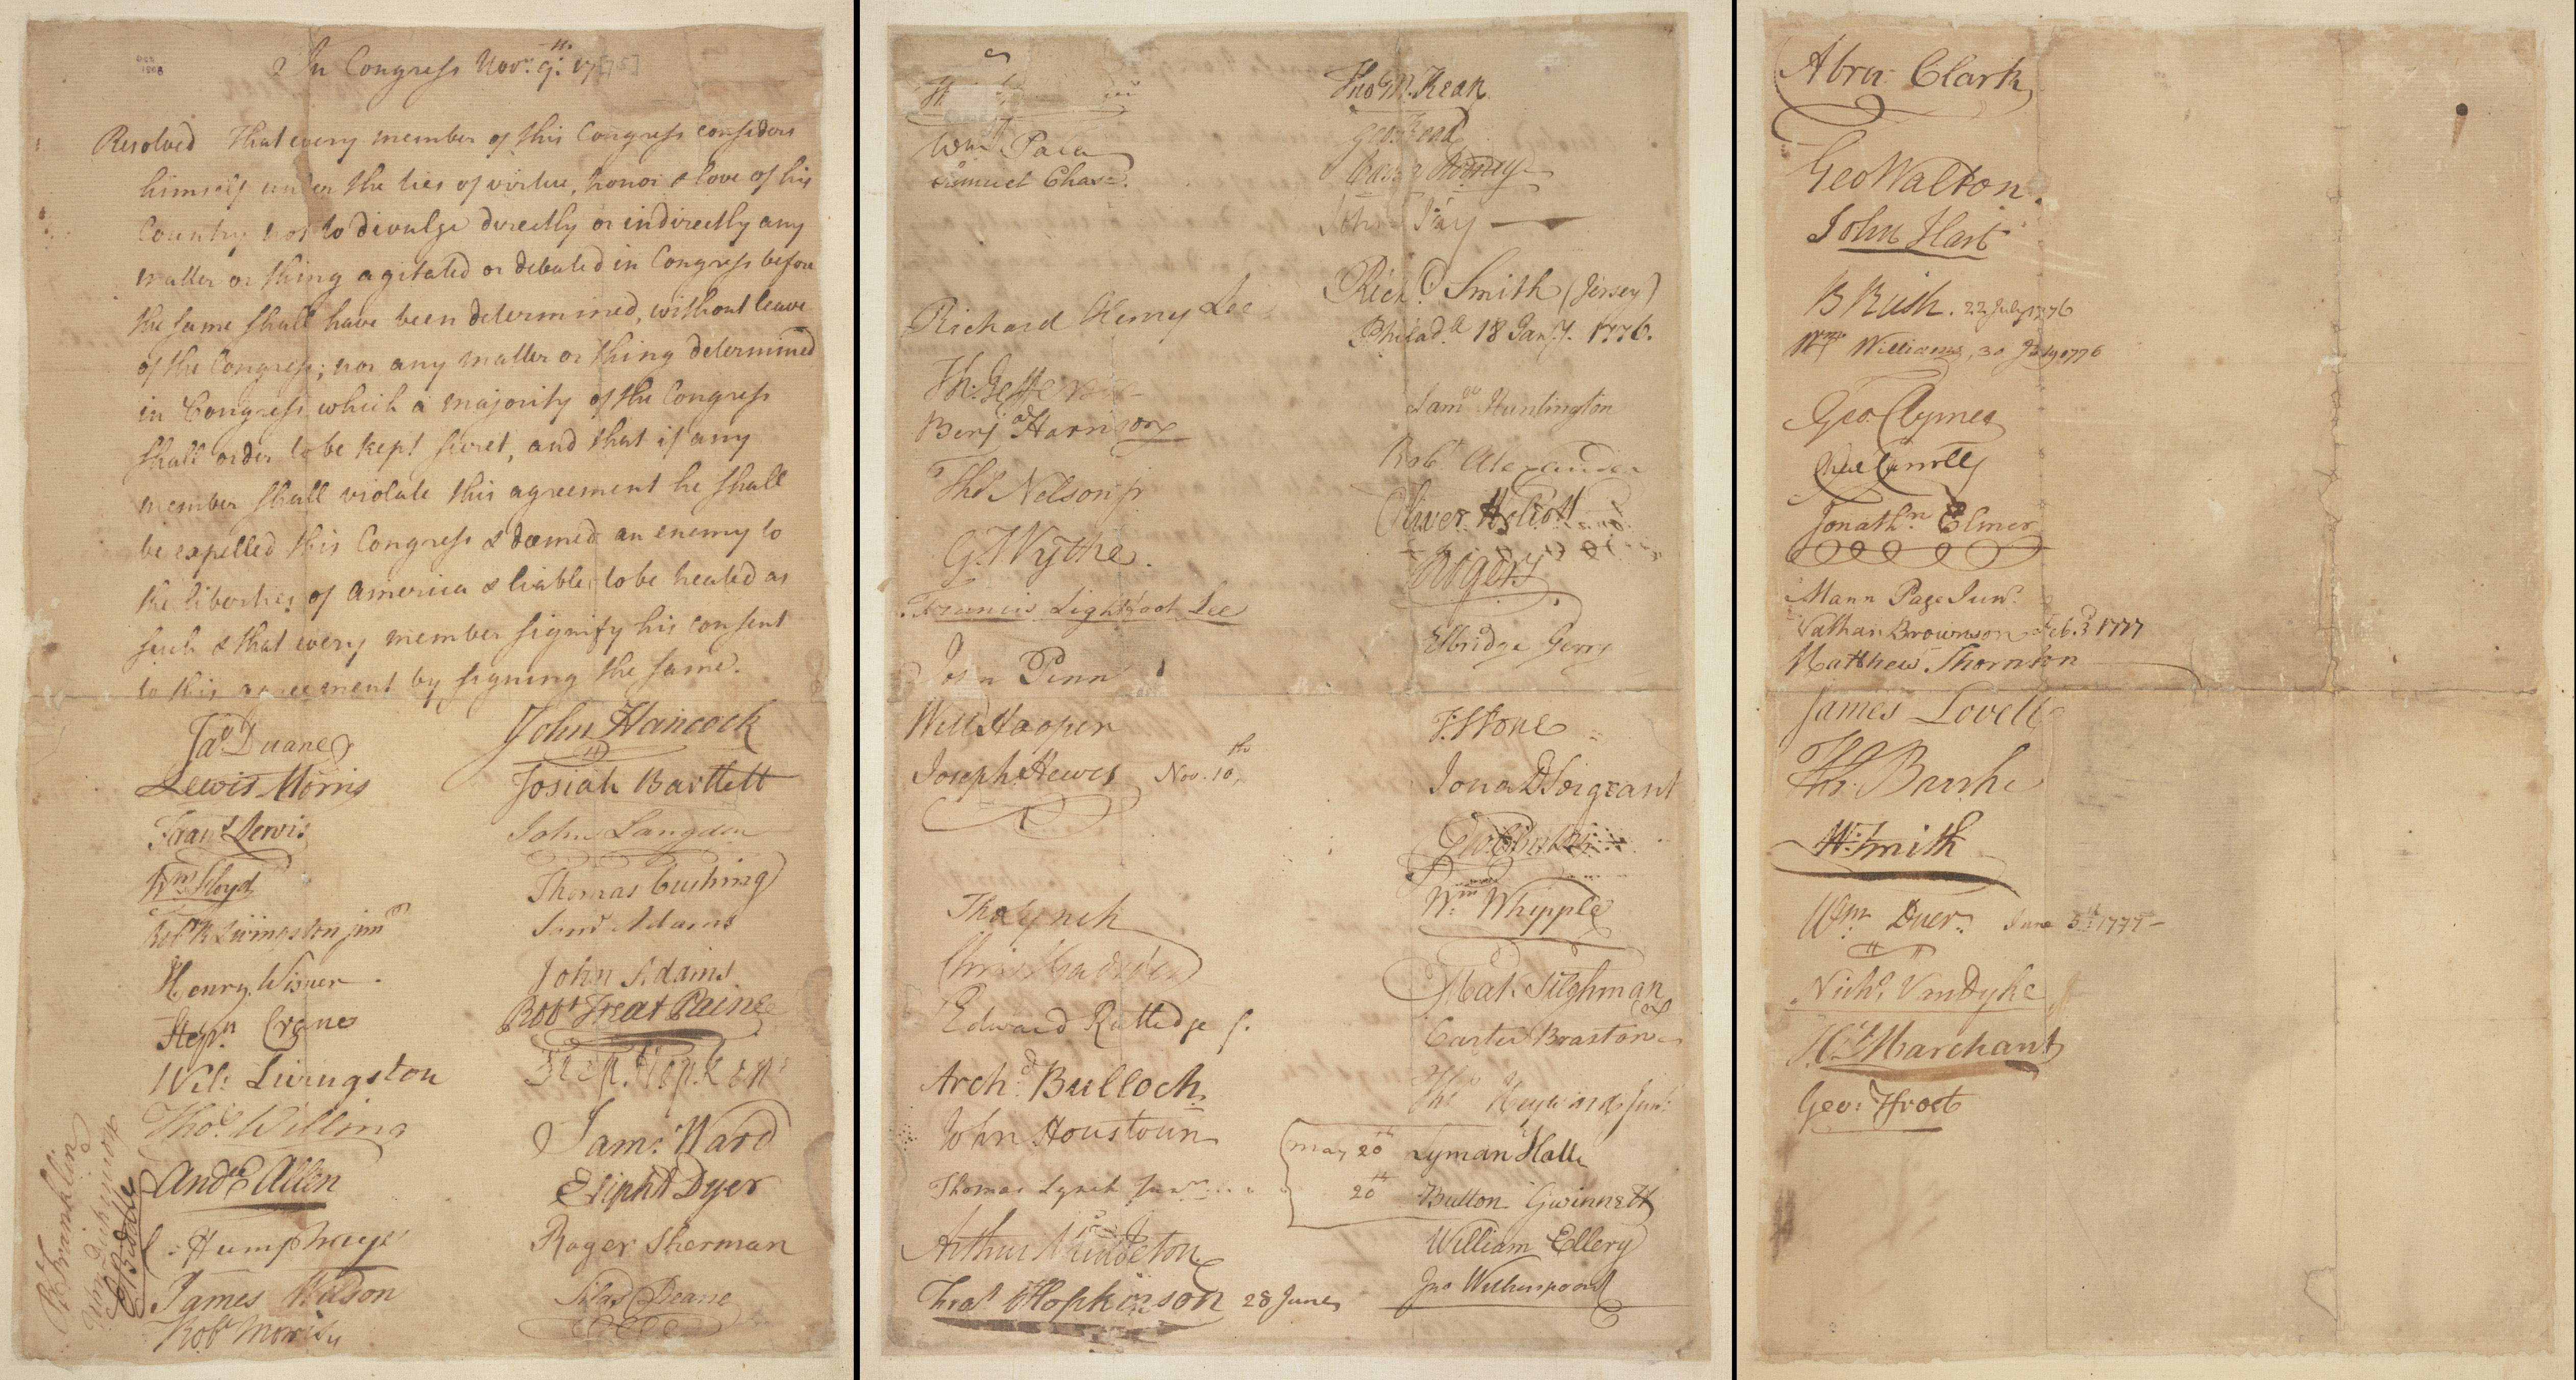 In Congress Nov.r 9.th 17[75]
Resolved That every member of this Congress considers
himself under the ties of virtue, honor & love of his
Country not to divulge directly or indirectly any
matter or thing agitated or debated in Congress before
the same shall have been determined, without leave
of the Congress; nor any matter or thing determined
in Congress which a majority of the Congress
shall order to be kept secret, and that if any
member shall violate this agreement he shall
be expelled this Congress & deemed an enemy to
the liberties of America & liable to be treated as
such & that every member signify his consent
to this agreement by signing the same.
Ja.s Duane
Lewis Morris
Fran.s Lewis
Wm Floyd
Rob R Livingston jun.r
Henry Wisner
Step.n Crane
Wil: Livingston
Tho.s Willing
And.w Allen
C: Humphreys
James Wilson
Rob.t Morris
B Franklin
John Dickinson
E Biddle
John Hancock
Josiah Bartlett
John Langdon
Thomas Cushing
Sam.l Adams
John Adams
Rob.t Treat Paine
Step. Hopkins
Sam: Ward
Eliph.t Dyer
Roger Sherman
Silas Deane
Wm Paca
Samuel Chase.
Richard Henry Lee
Th: Jefferson
Benj.a Harrison
Tho.s Nelson jr
G. Wythe.
Francis Lightfoot Lee
John Penn
Will Hooper
Joseph Hewes Nov. 10.th
Tho Lynch
Chris Gadsden
Edward Rutledge
Arch.d Bulloch
John Houstoun
Thomas Lynch Jun.r
Arthur Middleton
Fra.s Hopkinson 28 June
Tho M.Kean
Geo: Read
Caesar Rodney
John Jay
Rich.d Smith (Jersey)
Philad.a 18 Jan.y 1776.
Sam.l Huntington
Rob.t Alexander
Oliver Wolcott
Rogers
Elbridge Gerry
T. Stone
Jona D Sergeant
Wm Whipple
Mat. Tilghman
Carter Braxton
Tho.s Heyward Jun.r
May 20.th Lyman Hall
20.th Button Gwinnett
William Ellery
Jno Witherspoon
Abra: Clark
Geo Walton.
John Hart
B Rush. 22 July 1776
Wm Williams, 30 July 1776
Geo. Clymer
Jonath.n Elmer
Mann Page Jun.r
Nathan Brownson Feb. 3.d 1777
Matthew Thornton
James Lovell
Th: Burke
W. Smith
Wm Duer June 5.th 1777
Nich.s VanDyke
H.y Marchant
Geo: Frost